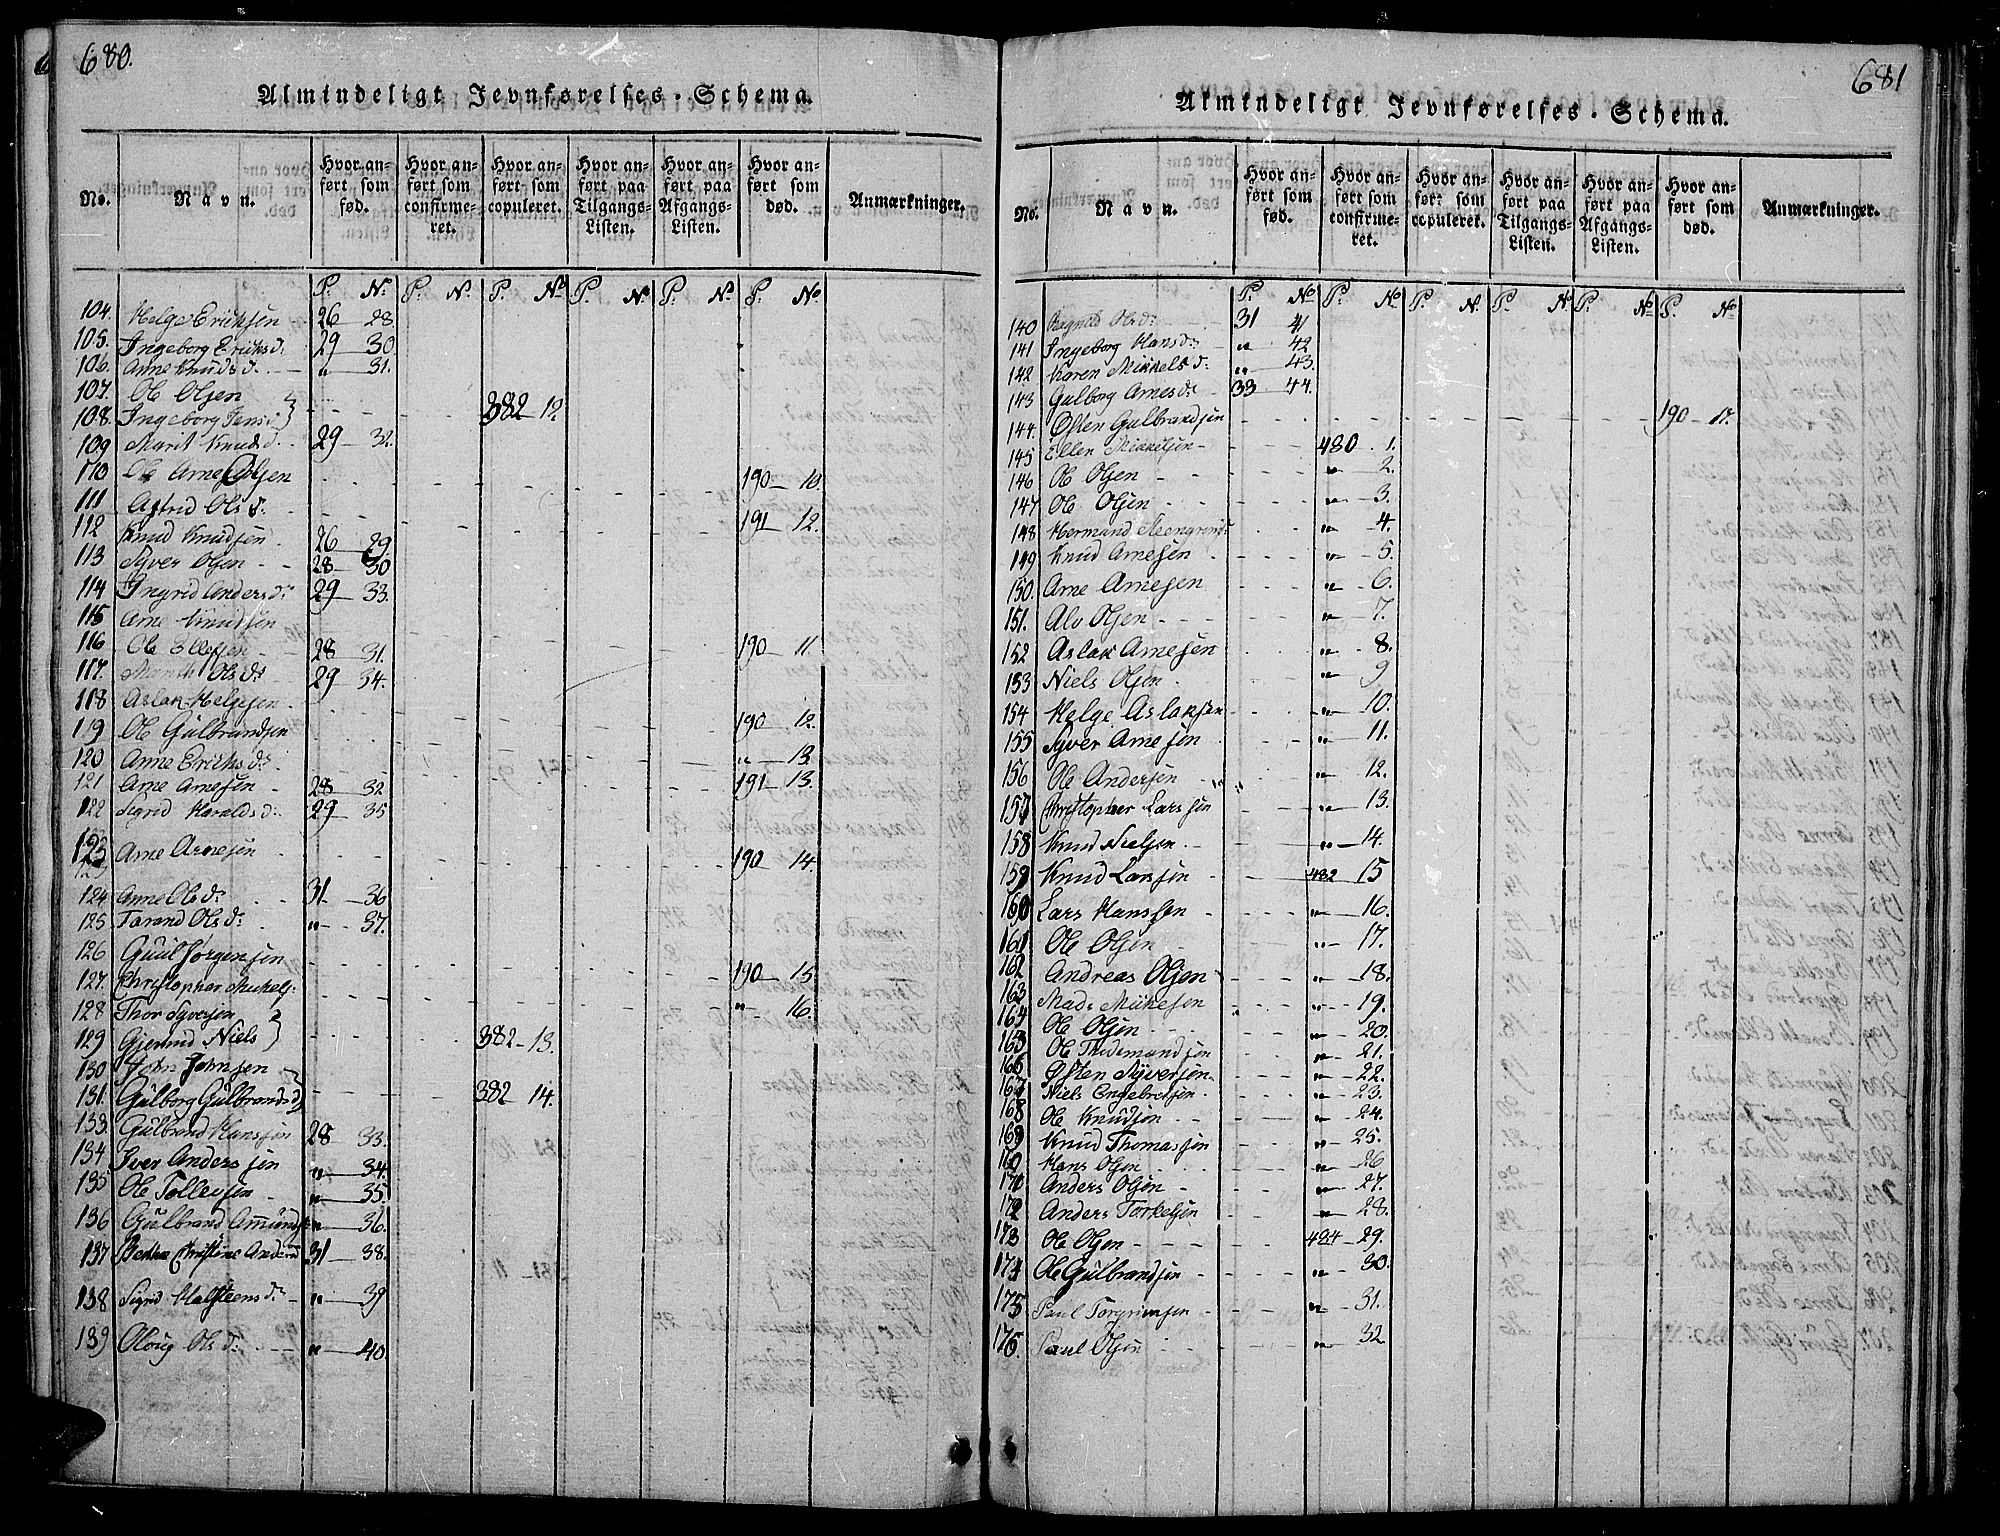 680.
Almindeligt Jevnførelses-Schema.
No. Navn. Hvor anført som fød. Hvor anført som confirmeret. Hvor anført som copuleret. Hvor anført paa Tilgangs-Listen. Hvor anført paa Afgangs-Listen. Hvor anført som død. Anmærkninger.
P. No. P. N. P. No P. No P. No P. No
104. Helge Ericksen 26 28.
105. Ingeborg Ericks d: 29 30
106. Anne Knuds d. „ 31.
107. Ole Olsen
108. Ingeborg Jens d } 382 12.
109 Marit Knuds d. 29 32.
110 Ole Arne Olsen 190 10.
111 Astrid Ols d. 191 12.
112 Knud Knudsen 26 29
113 Syver Olsen 28 30
114 Ingrid Anders d: 29 33.
115 Arne Knudsen
116 Ole Ellefsen 28 31. 190 11.
117. Ols d: 29 34.
118 Aslak Helgesen
119 Ole Gulbrandsen 190 12.
120 Anne Ericks d: „ 13.
121 Arne Arnesen 28 32 191 13.
122 Sigrid Haralds d: 29 35
123 Arne Arnesen 190 14.
124 Anne Ols d: 31 36
125 Tarand Ols d: „ 37.
126 Guul Jørgensen
127. Christopher Mickels. 190 15
128 Thor Syversen „ 16.
129 Gjerund Niels } 382 13.
130 John Johnsen
131. Gulborg Gulbrands d } 382 14.
133. Gulbrand Hansen 28 33.
134 Iver Andersen „ 34.
135 Ole Tollefsen „ 35.
136 Gulbrand Amunds „ 36.
137 Christine Anders 31 38.
138 Sigrid Halsteens d: „ 39
139 Oloug Ols d: „ 40.
681
Almindeligt Jevnførelses-Schema.
No. Navn. Hvor anført som fød. Hvor anført som confirmeret. Hvor anført som copuleret. Hvor anført paa Tilgangs-Listen. Hvor anført paa Afgangs-Listen. Hvor anført som død. Anmærkninger.
P. No P. No P. N. P. No P. No P. No
140 Ragnild Ols d: 31 41
141 Ingeborg Hans d: „ 42
142 Karen Mikkels d: „ 43.
143 Gulborg Arnes d: 33 44.
144. Østen Gulbrandsen 190 17.
145 Ellen Mikkelsen 480 1.
146 Ole Olsen „ 2.
147 Ole Olsen „ 3.
148 Hermand „ 4.
149 Knud Arnesen „ 5.
150. Arne Arnesen „ 6.
151. Alv Olsen „ 7.
152 Aslak Arnesen „ 8.
153 Niels Olsen „ 9
154 Helge Aslaksen „ 10.
155 Syver Arnesen „ 11.
156 Ole Andersen „ 12.
157 Christopher Larssen „ 13.
158 Knud Nielsen „ 14.
159 Knud Larssen 482 15
160 Lars Hanssen „ 16.
161 Ole Olsen „ 17.
162 Andreas Olsen „ 18.
163 Mads „ 19.
164 Ole Olsen „ 20.
165 Ole Thidemandsen „ 21.
166 Østen Syversen „ 22.
167 Niels Engebretsen „ 23.
168 Ole Knudsen „ 24.
169 Knud Thomassen „ 25.
160 Hans Olsen „ 26
170 Anders Olsen „ 27.
172 Anders Torkelsen „ 28.
173 Ole Olsen 484 29.
174 Ole Gulbrandsen „ 30.
175 Paul Torgrimsen „ 31.
176. Paul Olsen „ 32